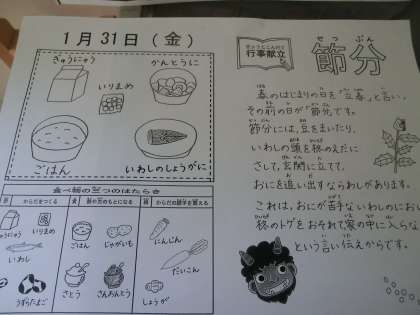 1月31日（金）
ぎゅうにゅう
かんとうに
いりまめ
ごはん
いわしのしょうがに
食べ物の三つのはたらき
からだをつくる
熱や力のもとになる
からだの調子を整える
ぎゅうにゅう
いりまめ
いわし
うずらたまご
ごはん
じゃがいも
さとう
さんおんとう
にんじん
だいこん
しょうが
行事献立
せつぶん
節分
春のはじまりの日を「立春」と言い、
その前の日が「節分」です。
節分には、豆をまいたり、
いわしの頭を柊の枝に
さして、玄関に立てて、
おにを追い出すならわしがあります。
これは、おにが苦手ないわしのにおいと
柊のトゲをおそれて家の中に入らな
という言い伝えからです。